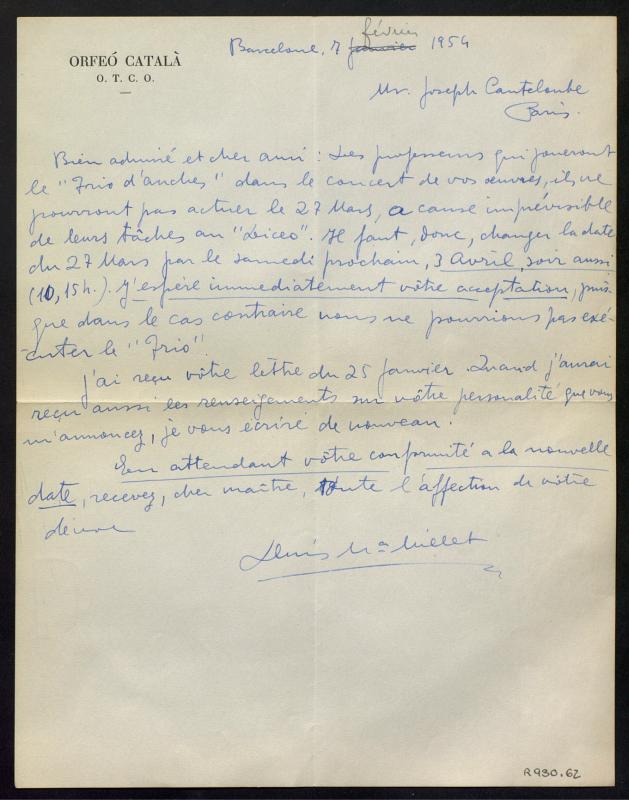 ORFEÓ CATALÀ
O. T. C. O.
février
Barcelone, 7 janvier 1954
Mr. Joseph Canteloube
Paris.
Bien admiré et cher ami: Les professeurs qui joueront
le "Trio d'anches" dans le concert de vos œuvres, ils ne
pourront pas actuer le 27 Mars, a cause imprévisible
de leurs tâches au "Liceo". Il faut, donc, changer la date
du 27 Mars par le samedi prochain, 3 Avril, soir aussi
(10,15h.). J'espère immédiatement vôtre acceptation, puis-
que dans le cas contraire nous ne pourrions pas exé-
cuter le "Trio".
J'ai reçu vôtre lèttre du 25 janvier. Quand j'aurai
reçu aussi les renseigaments sur vôtre personalité que vous
m'annoncez, je vous écriré de nouveau.
En attendant vôtre conformité a la nouvelle
date, recevez, cher maître, toute l'affection de vôtre
dévoué
Lluís Mª Millet
R930.62